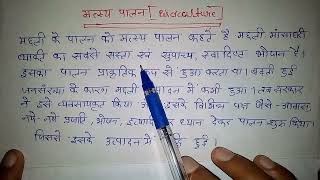 मत्स्य पालन [Pisciculture]
मछली के पालन को मत्स्य पालन कहते हैं मछली मांसाहारी
व्यक्ति का सबसे सस्ता एवं सुपाच्य, स्वादिष्ट भोजन है।
इसका पालन प्राकृतिक रूप से हुआ करता था। बढ़ती हुई
जनसंख्या के कारण मछली उत्पादन में कमी हुआ। तब सरकार
ने इसे व्यवसायिक किया और इसके विभिन्न पक्ष जैसे - आवास,
नये-नये प्रजाति, भोजन, इत्यादि पर ध्यान देकर पालन शुरू किया।
जिससे इसके उत्पादन में हुई।